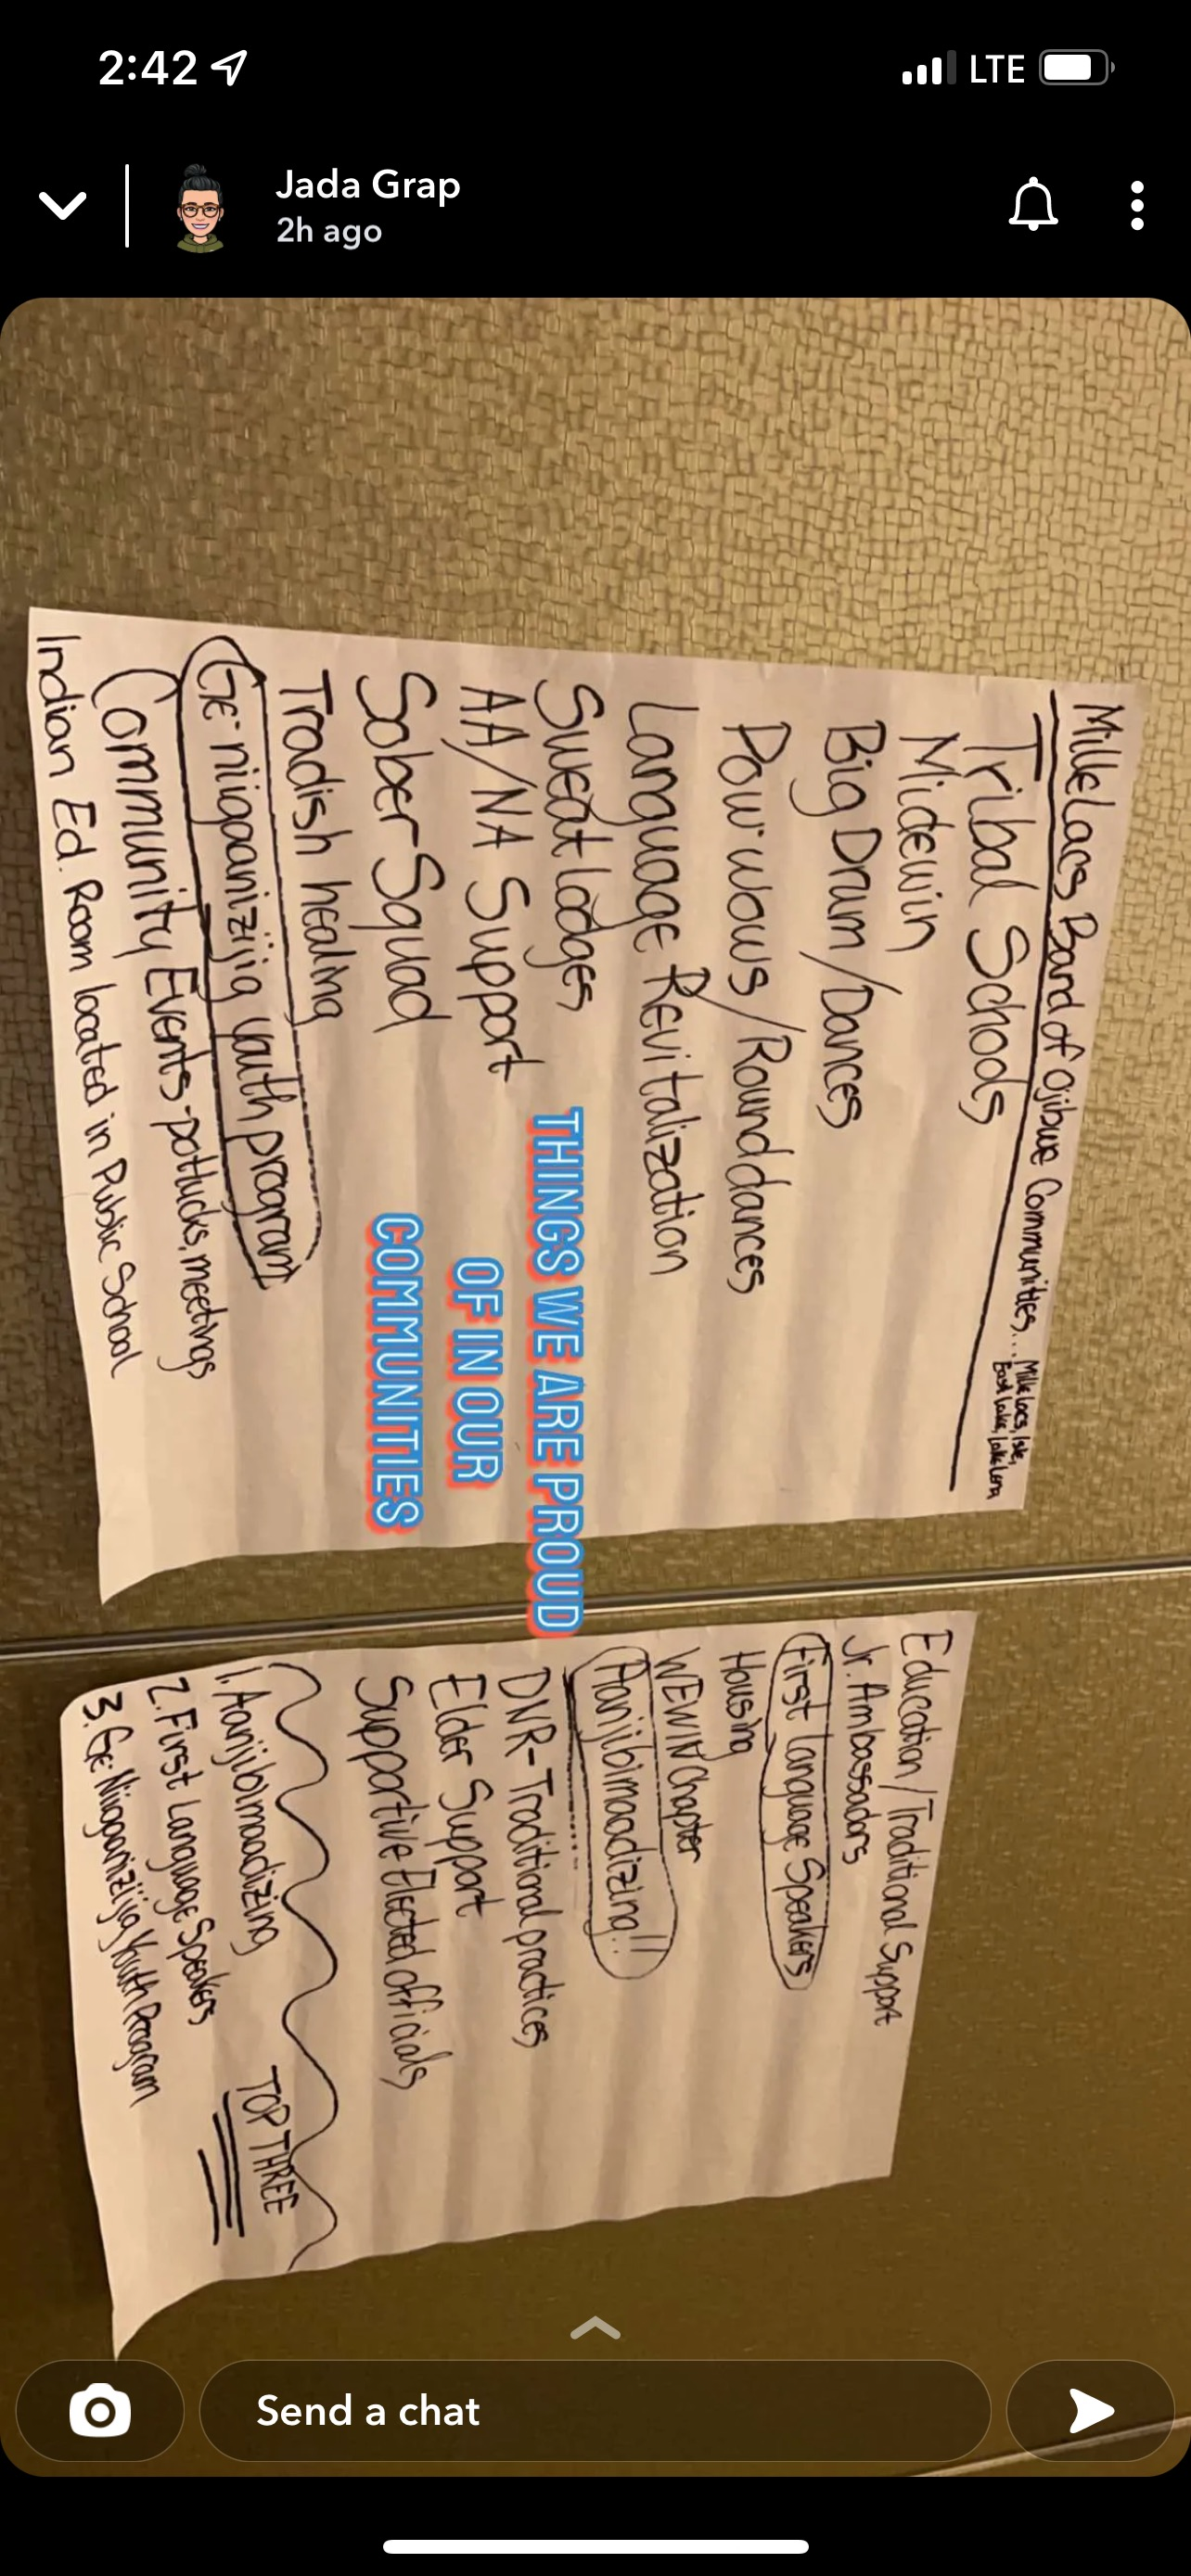 2:42
LTE
Jada Grap
2h ago
Mille Lacs Band of Ojibwe Communities... Mille Lacs, Isle,
East Lake, Lake Lena
Tribal Schools
Midewin
Big Drum/Dances
Pow-wows/Round dances
Language Revitalization
Sweat lodges
AA/NA Support
Sober Squad
Tradish healing
Ge-niigaanizijig youth program
Community Events-potlucks, meetings
Indian Ed. Room located in Public School
THINGS WE ARE PROUD
OF IN OUR
COMMUNITIES
Education/Traditional Support
Jr. Ambassadors
First language Speakers
Housing
WEWIN Chapter
Aanjibimaadizing!!
DNR-Traditional practices
Elder Support
Supportive Elected officials
TOP THREE
1. Aanjibimaadizing
2. First Language Speakers
3. Ge Niigaanizijig Youth Program
Send a chat